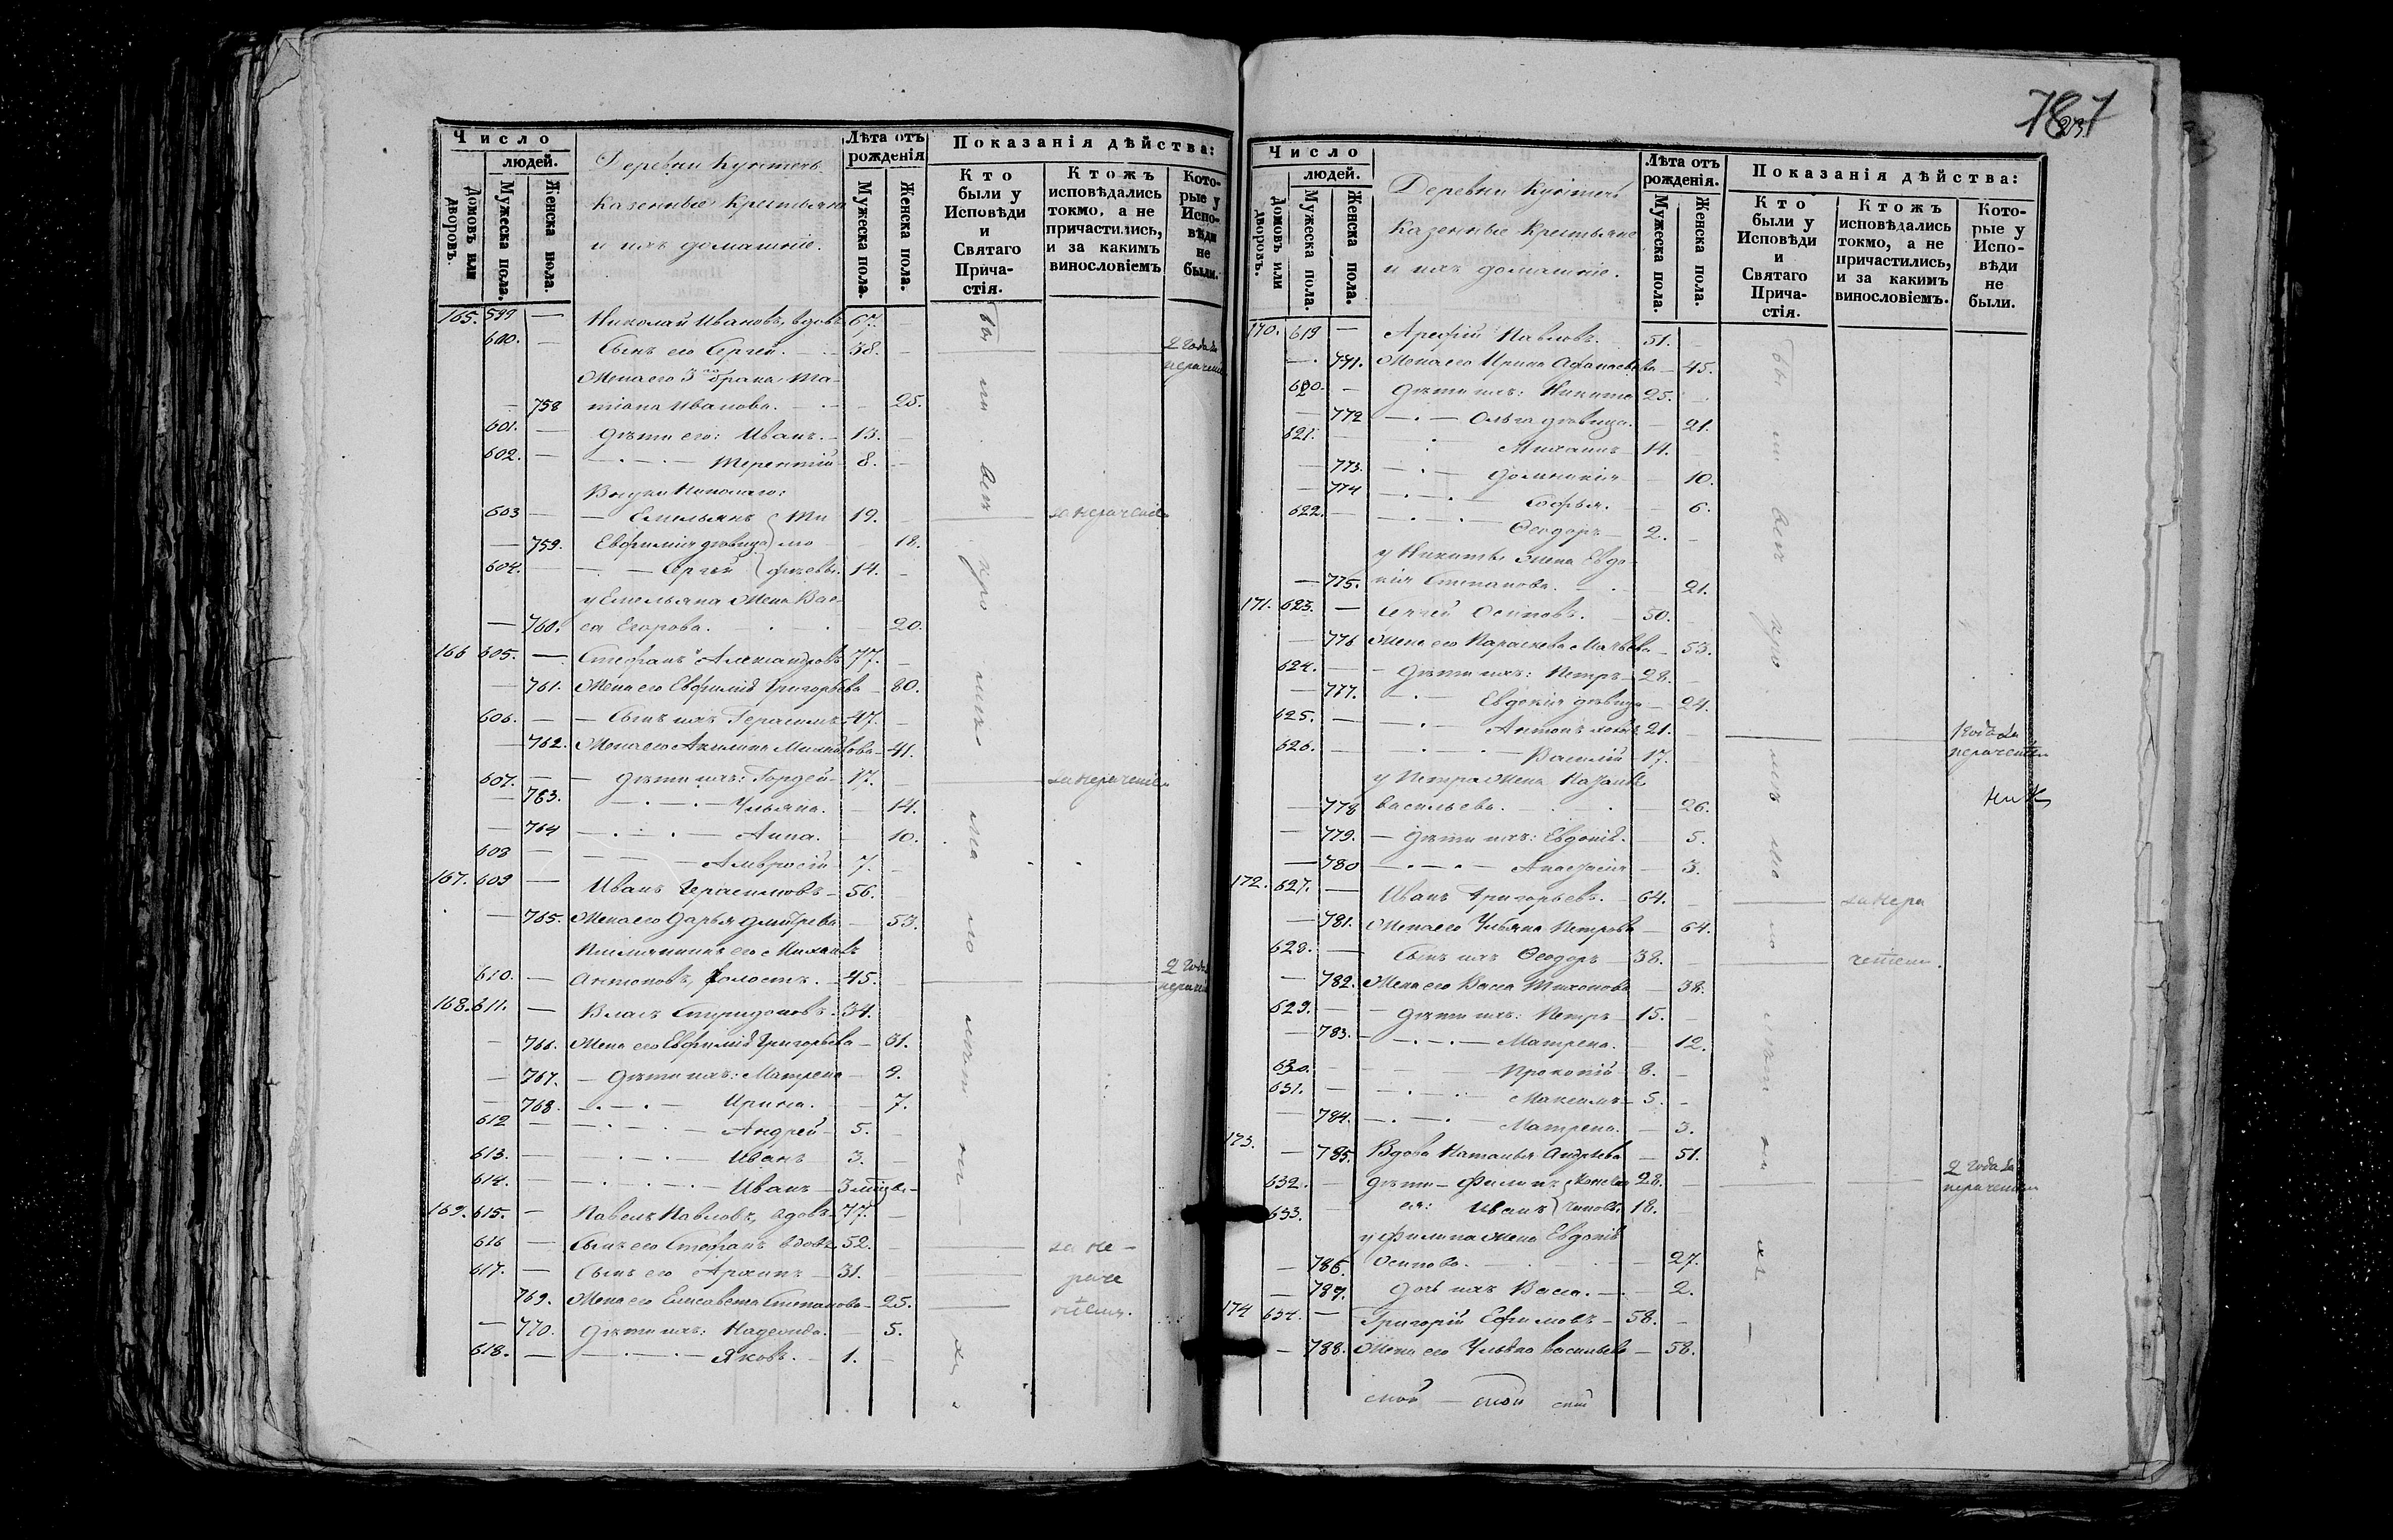 787
Число
людей.
Домовъ или дворовъ.
Мужеска пола.
Женска пола.
Деревни
Казенные Крестьяне
и ихъ домашніе.
Лѣта отъ рожденія
Мужеска пола.
Женска пола.
Показанія дѣйства:
Кто были у Исповѣди и Святаго Причастія.
Ктожъ исповѣдались токмо, а не причастились, и за какимъ винословіемъ
Которые у Исповѣди не были.
165. 599 — Николай Ивановъ, вдовъ 67.
600. — Сынъ его Сергей. 38. 2 года за нерачен
Жена его 3го брака Та-
— 758 тіана Иванова. — 25.
601. — Дѣти его: Иванъ. 13.
602. — Терентій 8.
Внуки Николаго:
603 — Емельянъ Ти 19. за нераченіе
— 759. Евфимія дѣвица мо 18.
604. — Сергей фѣевы. 14.
у Емельяна Жена Вас-
— 760. са Егорова. 20.
166 605. — Стефанъ Александровъ 77.
— 761. Жена его Евфимія Григорьева 80.
606. — Сынъ ихъ Герасимъ 47.
— 762. Жена его Акилина Михайлова 41.
607. — Дѣти ихъ: Гордей 17. за нераченіе
— 763. Ульяна. 14.
— 764 Анна. 10.
608 — Амвросій 7.
167. 609 — Иванъ Герасимовъ 56.
— 765. Жена его Дарья Дмитрева 53.
Племянникъ его Михаилъ
610. — Антоновъ, холостъ. 45. 2 года
168. 611. — Власъ Спиридоновъ 34.
— 766. Жена его Евфимія Григорьева 31.
— 767. Дѣти ихъ: Матрена 9.
— 768. Ирина. 7.
612 — Андрей 5.
613. — Иванъ 3.
614. — Иванъ 3
169. 615. — Павелъ Павловъ, вдовъ 77.
616 — Сынъ его Стефанъ вдовъ 52. за не-
617. — Сынъ его Архипъ 31. раче
769. Жена его Елисавета Степанова 25. ніемъ.
— 770. Дѣти ихъ: Надежда. 5.
618. — Яковъ. 1.
Были всѣ кро мѣ
Число
людей.
Домовъ или дворовъ.
Мужеска пола.
Женска пола.
Деревни
Казенные Крестьяне
и ихъ домашніе.
Лѣта отъ рожденія.
Мужеска пола.
Женска пола.
Показанія дѣйства:
Кто были у Исповѣди и Святаго Причастія.
Ктожъ исповѣдались токмо, а не причастились, и за какимъ винословіемъ.
Которые у Исповѣди не были.
170. 619 — Арефій Павловъ. 51.
— 771. Жена его Ирина Афанасьева 45.
620. — Дѣти ихъ: Никита 25.
— 772 Ольга дѣвица. 21.
621. — Михаилъ 14.
— 773. Домникія 10.
— 774 Софья. 6.
622. — Ѳеодоръ 2.
у Никиты жена Евдо-
— 775. кія Степанова. 21.
171. 623. — Сергей Осиповъ. 50.
— 776 Жена его Параскева Матвѣева 53.
624. — Дѣти ихъ: Петръ 28.
— 777. Евдокія дѣвица 24.
625. — Антонъ холос. 21. 1 годъ за нераченіемъ
626. — Василій 17.
у Петра Жена
— 778 Васильева. 26.
— 779. Дѣти ихъ: Евдокія. 5.
— 780 Анастасія 3.
172. 627. — Иванъ Григорьевъ. 64. за нера
— 781. Жена его Ульяна Петрова 64.
628. — Сынъ ихъ Ѳеодоръ 38. ченіемъ.
— 782. Жена его Васса Тихонова 38.
629. — Дѣти ихъ: Петръ 15.
— 783. Матрена. 12.
630. — Прокопій 8.
631. — Максимъ 5.
— 784. Матрена. 3.
173. — 785. Вдова Наталья Андреева 51.
632. — Дѣти Филипъ 28. 2 года за нераченіемъ
633. ея: Иванъ 18.
у Филипа жена Евдокія
— 786. Осипова. 27.
— 787. Дочь ихъ Васса. 2.
174 634. — Григорій Ефимовъ 58.
— 788. Жена его Ульяна Васильева 58.
Были всѣ кро мѣ